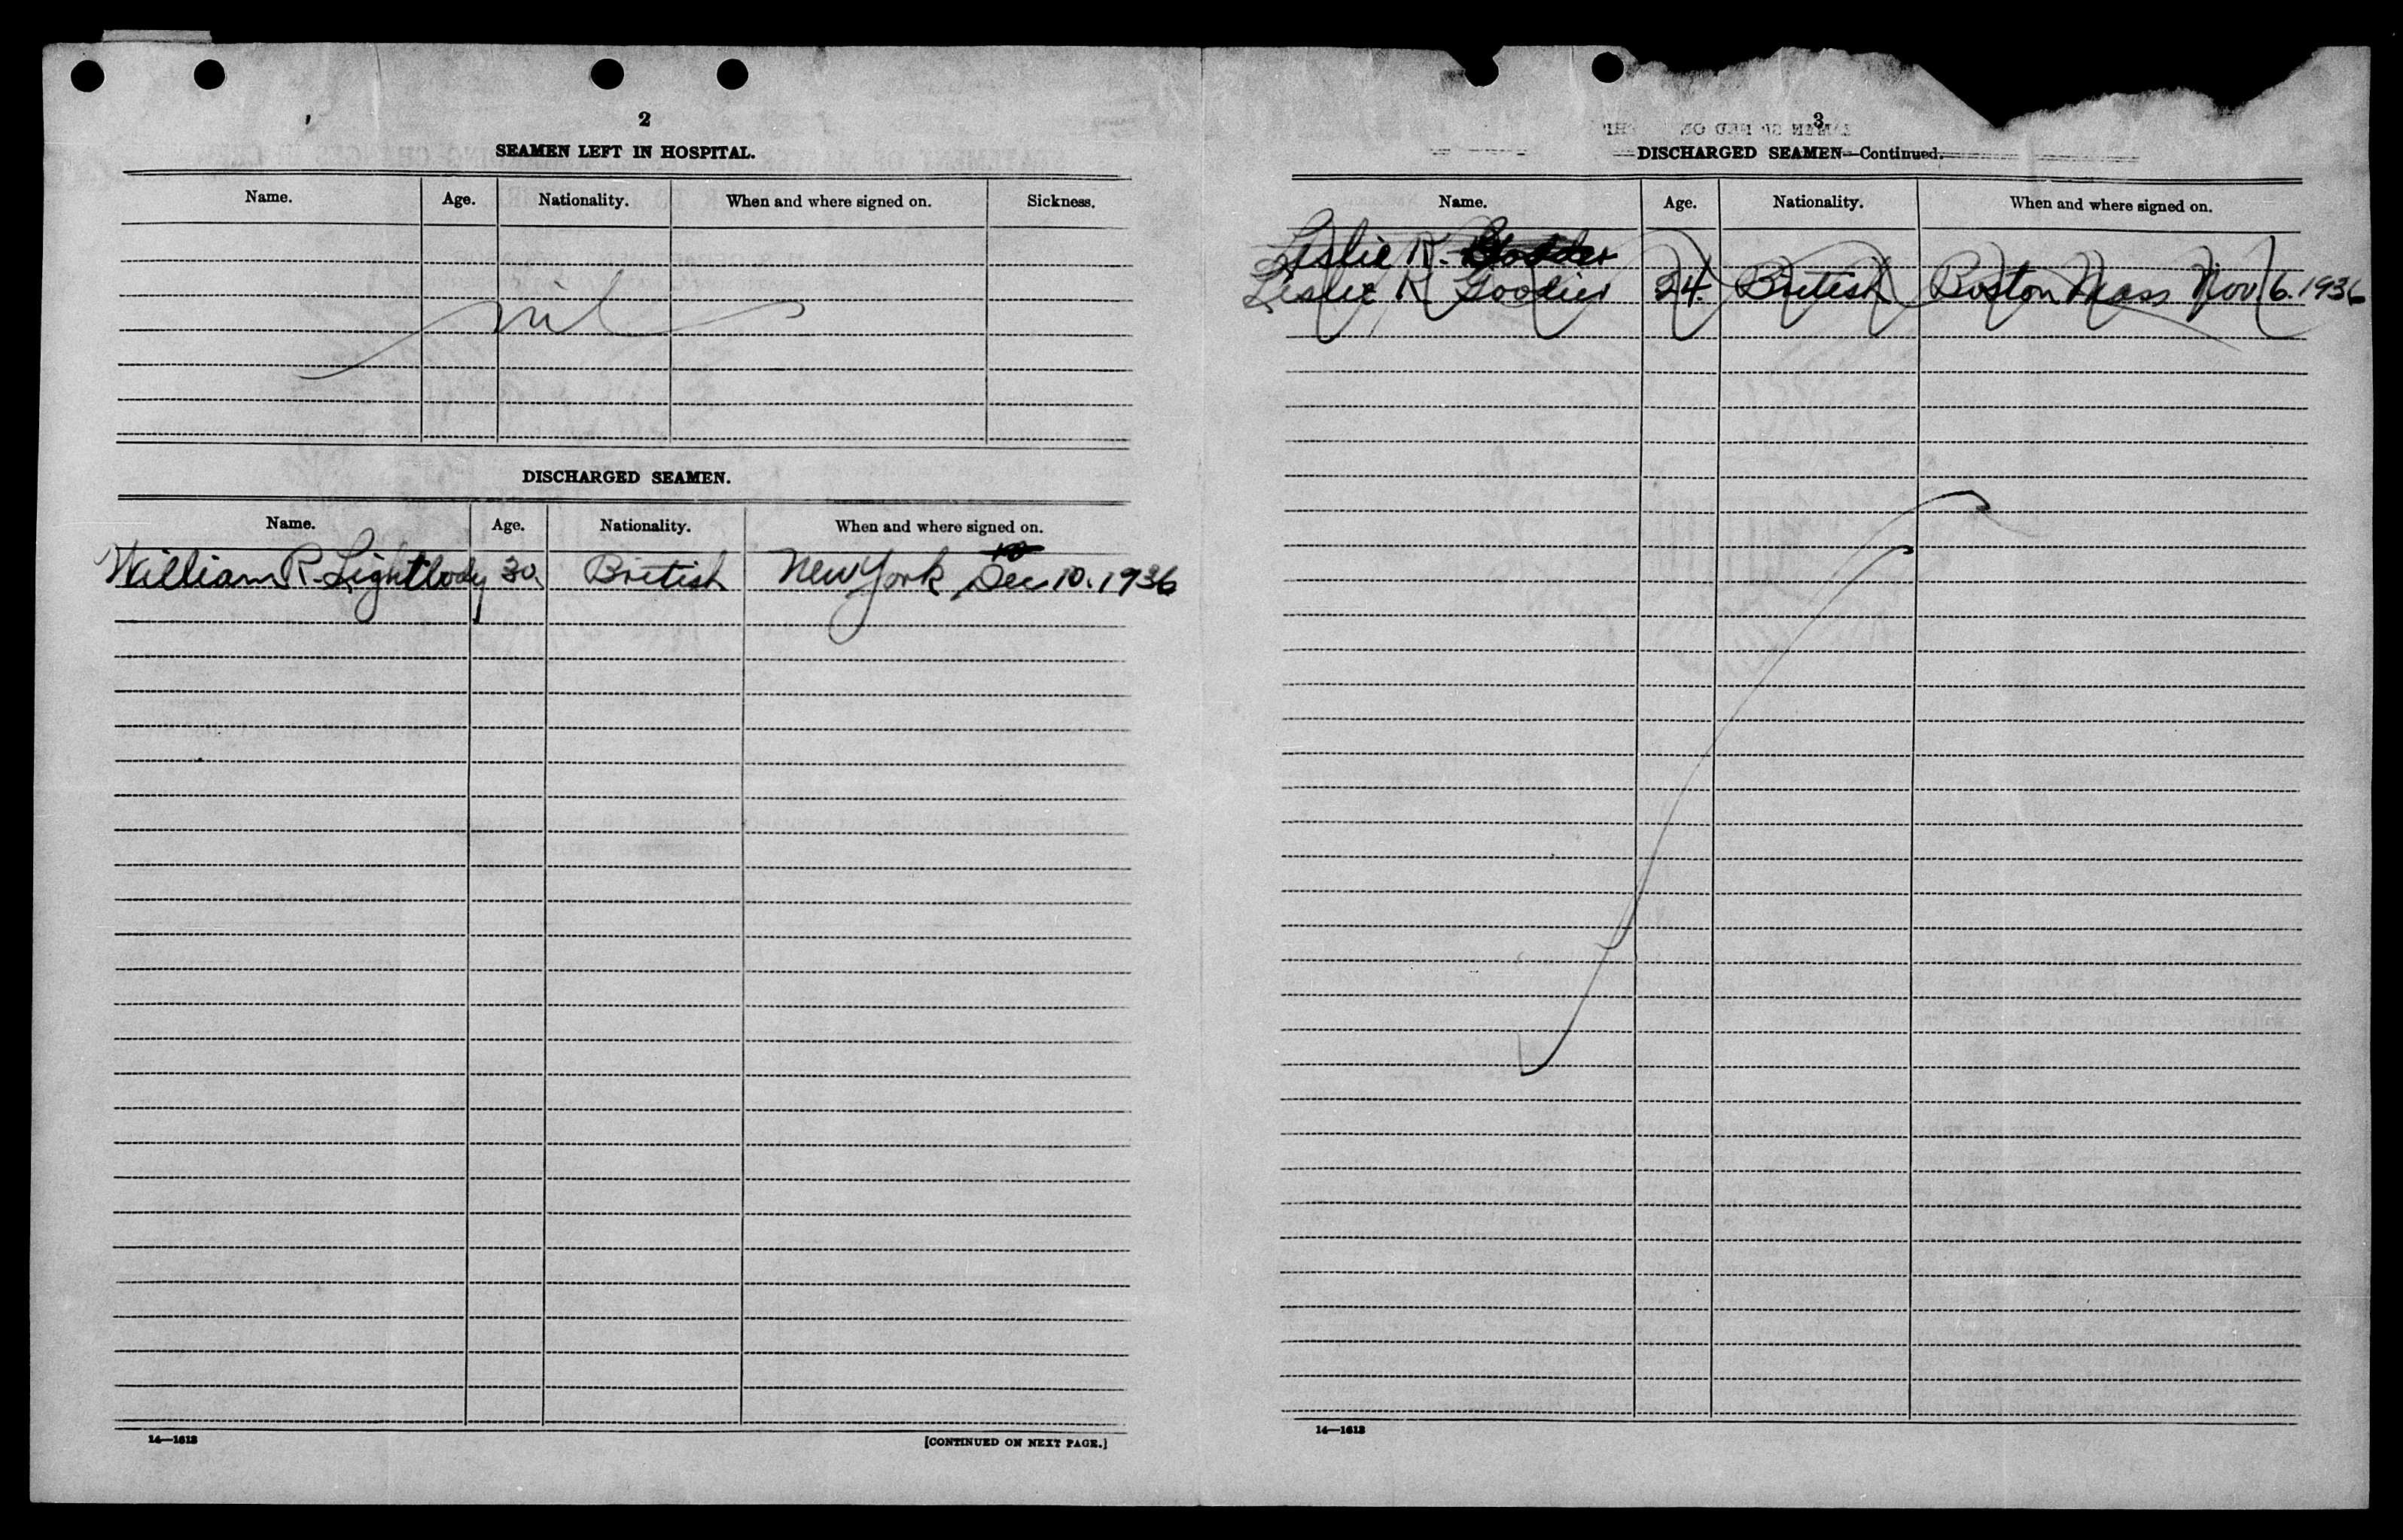 2
SEAMEN LEFT IN HOSPITAL.
Name. Age. Nationality. When and where signed on. Sickness.
nil
DISCHARGED SEAMEN.
Name. Age. Nationality. When and where signed on.
William R. Lightbody 30. British New York Dec 10. 1936
14—1613
[CONTINUED ON NEXT PAGE.]
3
DISCHARGED SEAMEN—Continued.
Name. Age. Nationality. When and where signed on.
Leslie R.
Leslie R Goodier 24. British Boston Mass Nov. 6. 1936
14—1613